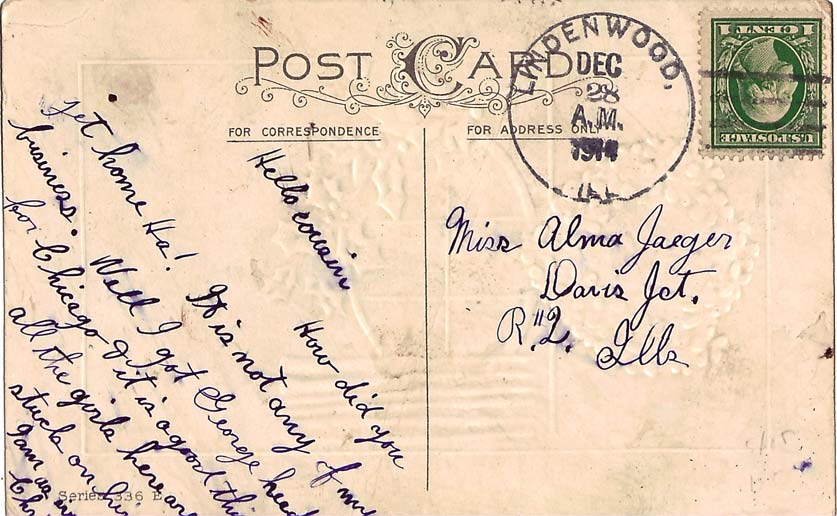 POST CARD
FOR CORRESPONDENCE
FOR ADDRESS ONLY
LINDENWOOD,
DEC
28
A.M.
1914
ILL
1 CENT 1
U.S. POSTAGE
Miss Alma Jaeger
Davis Jct.
R."2. Ills
Hello cousin
How did you
get home Ha! It is not any of my
business. Well I got George head
for Chicago & it is a good thi
all the girls here are
stuck on hi
I am as
Chr
Series 336 E